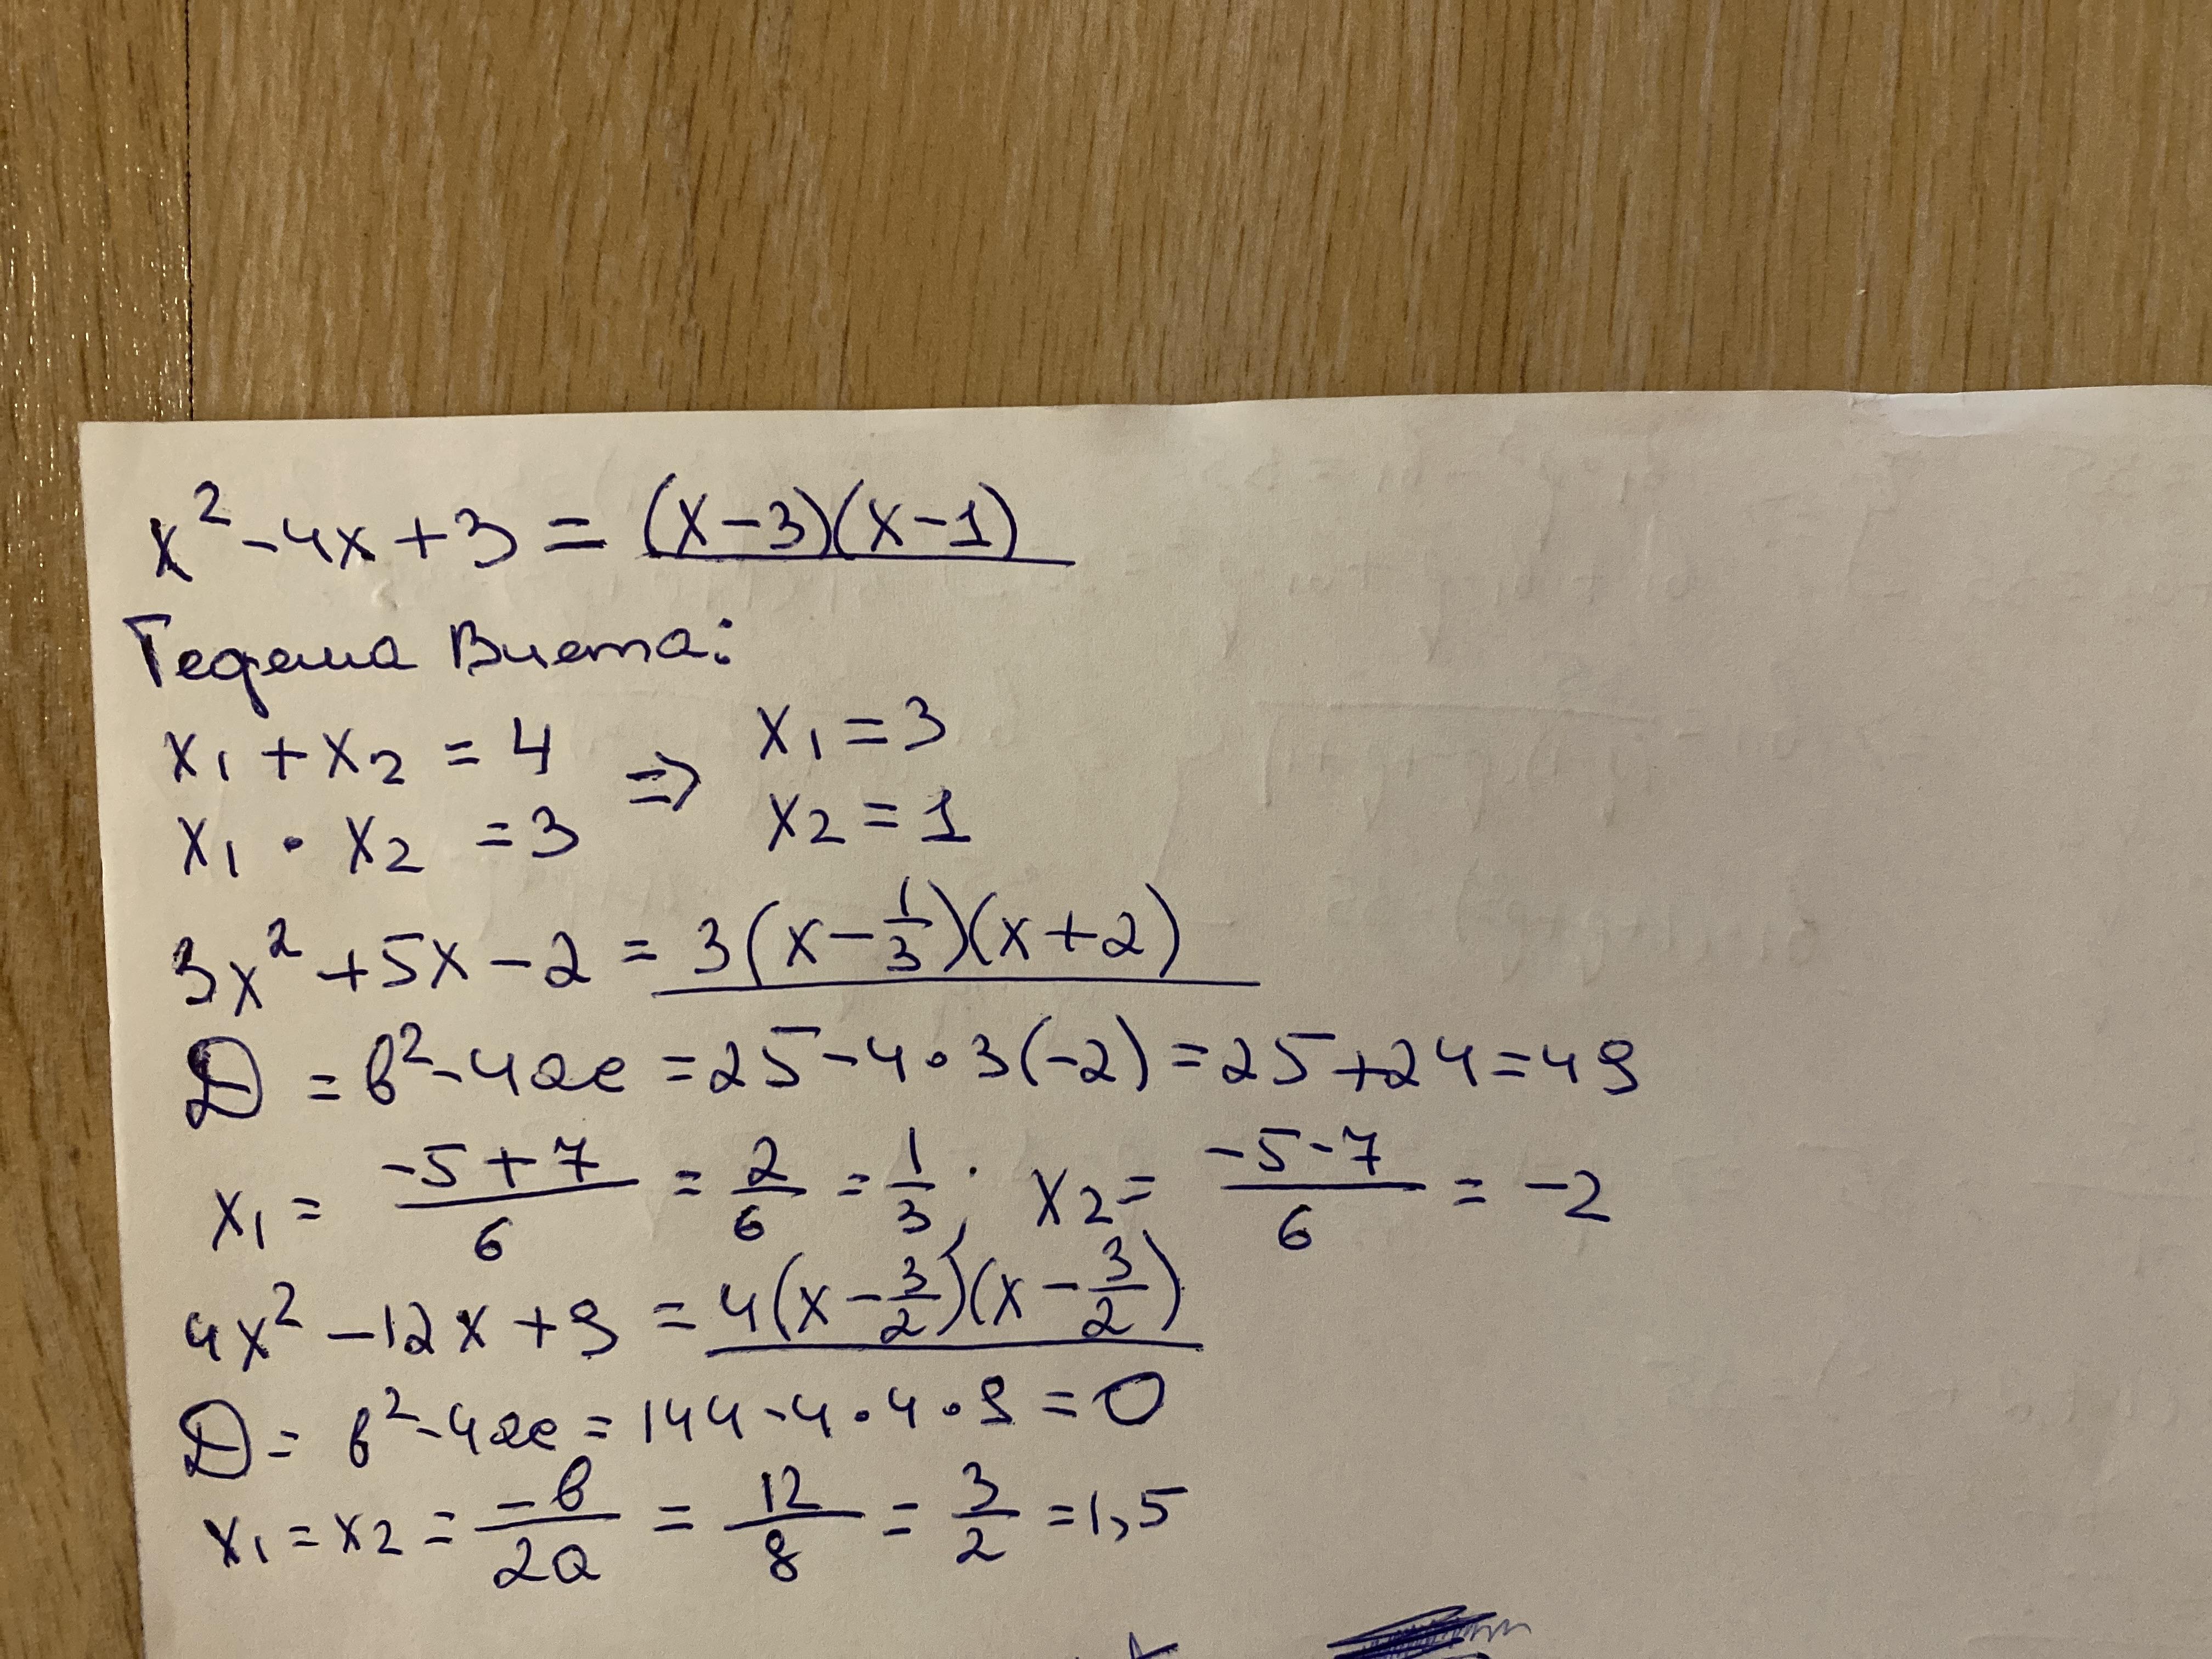 x² - 4x + 3 = (x - 3)(x - 1)
Теорема Виета:
x₁ + x₂ = 4 ⇒ x₁ = 3
x₁ · x₂ = 3 x₂ = 1
3x² + 5x - 2 = 3(x - 1/3)(x + 2)
D = b² - 4ac = 25 - 4 · 3(-2) = 25 + 24 = 49
x₁ = (-5 + 7)/6 = 2/6 = 1/3; x₂ = (-5 - 7)/6 = -2
4x² - 12x + 9 = 4(x - 3/2)(x - 3/2)
D = b² - 4ac = 144 - 4 · 4 · 9 = 0
x₁ = x₂ = -b/2a = 12/8 = 3/2 = 1,5